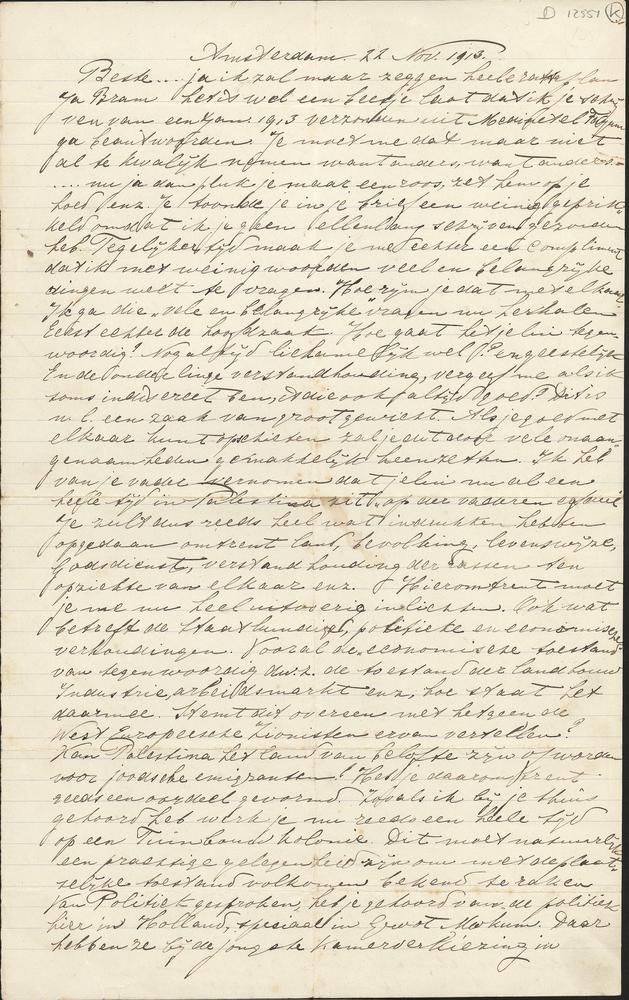 D 12551 K
Amsterdam 22 Nov. 1913.
Beste .... ja ik zal maar zeggen heele
Ja Bram het is wel een beetje laat dat ik je schrij
ven van een Jan. 1913 verzonden uit
ga beantwoorden. Je moet me dat maar niet
al te kwalijk nemen want anders, want anders ..
.... nu ja dan pluk je maar een roos, zet hem op je
hoed enz. Je toonde je in je brief een weinig geprik
keld omdat ik je geen ellenlang schrijven gezonden
heb. Tegelijkertijd maak je me echter een compliment
dat ik met weinig woorden veel en belangrijke
dingen weet te vragen. Hoe rijm je dat met elkaar?
Ik ga die „vele en belangrijke" vragen nu herhalen
Eerst echter de hoofdzaak. Hoe gaat het jelui tegen-
woordig? Nog altijd lichamelijk wel? en geestelijk
En de onderlinge verstandhouding, vergeef me als ik
soms indiscreet ben, is die ook altijd goed? Dit is
n.l. een zaak van groot gewicht. Als je goed met
elkaar kunt opschieten zal je dit door vele onaan-
genaamheden gemakkelijk heen zetten. Ik heb
van je vader vernomen dat jelui nu al een
heele tijd in Palestina zit, op der vaderen
Je zult dus reeds heel wat indrukken hebben
opgedaan omtrent land, bevolking, levenswijze,
Godsdienst, verstandhouding der rassen ten
opzichte van elkaar enz. Hieromtrent moet
je me nu heel uitvoerig inlichten. Ook wat
betreft de staatkundige, politieke en economische
verhoudingen. Vooral de economische toestand
van tegenwoordig d.w.z. de toestand der landbouw
Industrie, arbeidsmarkt enz, hoe staat het
daarmee. Stemt dit overeen met hetgeen de
West Europeesche Zionisten ervan vertellen?
Kan Palestina het land van belofte zijn of worden
voor joodsche emigranten? Heb je daaromtrent
reeds een oordeel gevormd. Zooals ik bij je thuis
gehoord heb werk je nu reeds een heele tijd
op een Tuinbouw kolonie. Dit moet natuurlijk
een prachtige gelegenheid zijn om met de plaat-
selijke toestand volkomen bekend te raken
Van Politiek gesproken, heb je gehoord van de politiek
hier in Holland, speciaal in Groot Mokum. Daar
hebben ze bij de jongste kamerverkiezing in